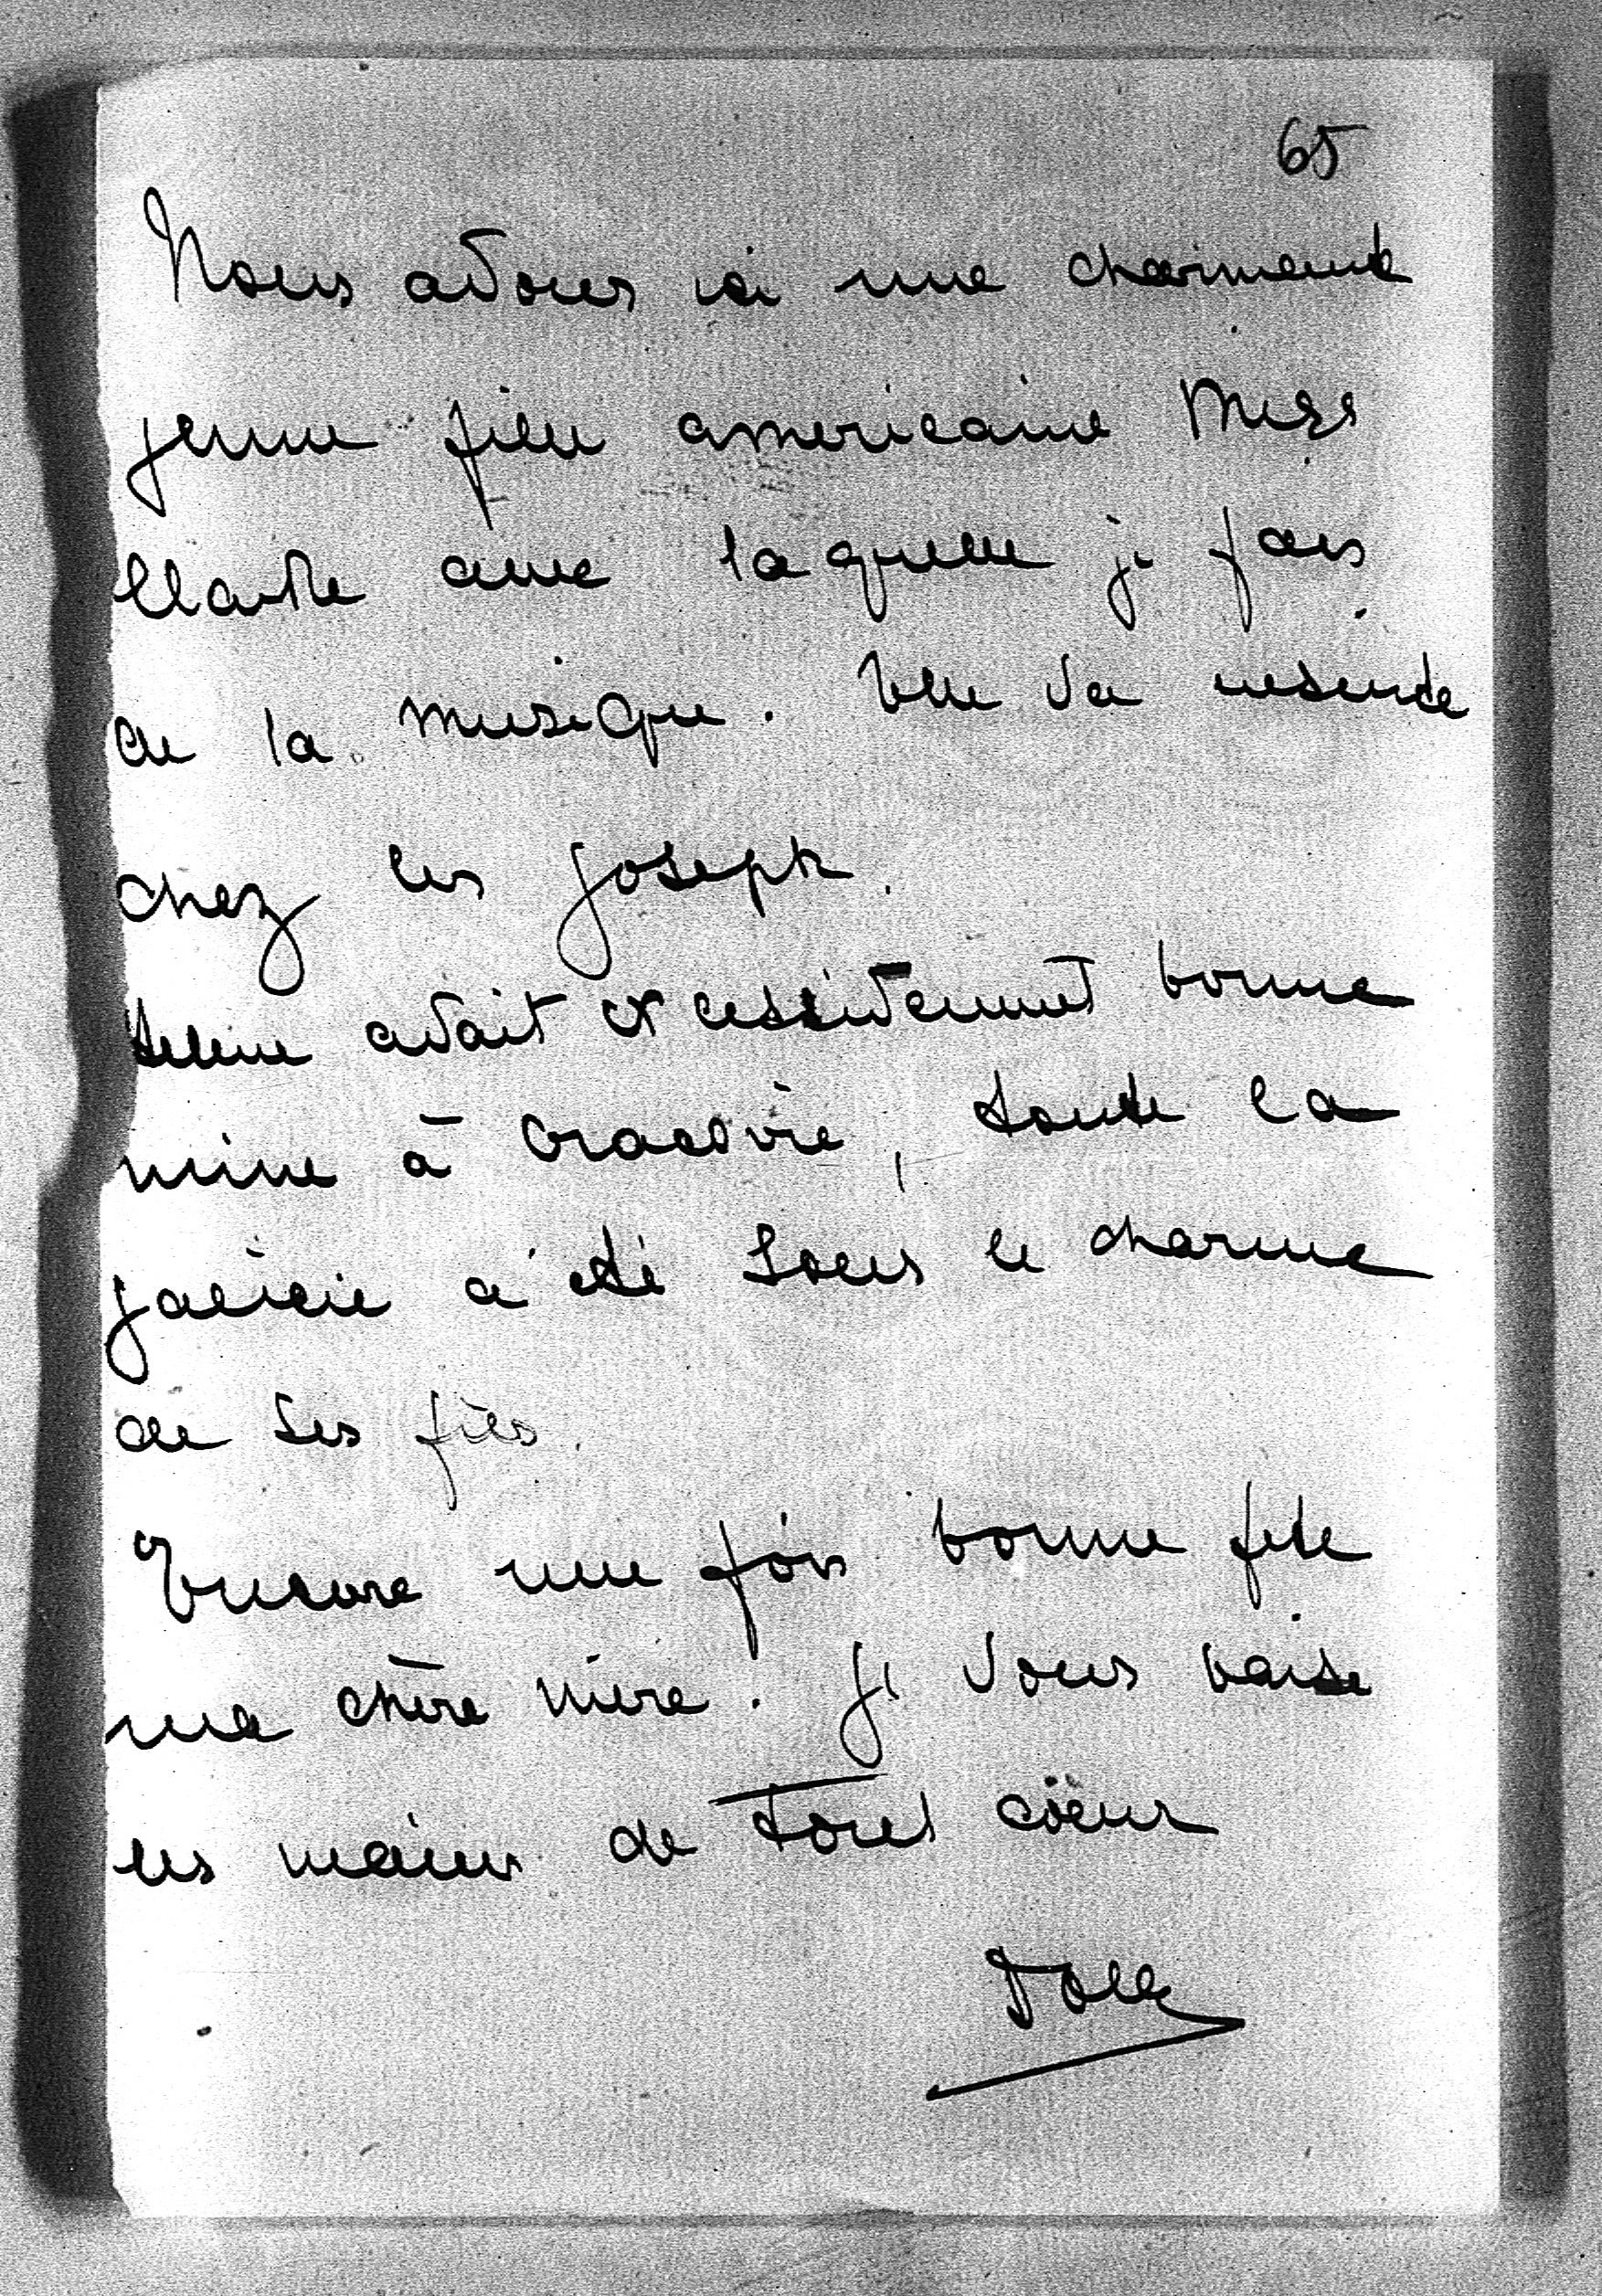 65
Nous avons ici une charmante
jeune fille americaine Miss
avec laquelle je fais
de la musique. Elle va ensuite
chez les Joseph.
Helene avait excessivement bonne
mine à Cracovie, toute la
galicie a été sous le charme
de ses filles.
Encore une fois bonne fete
ma chère mère. Je vous baise
les mains de tout coeur